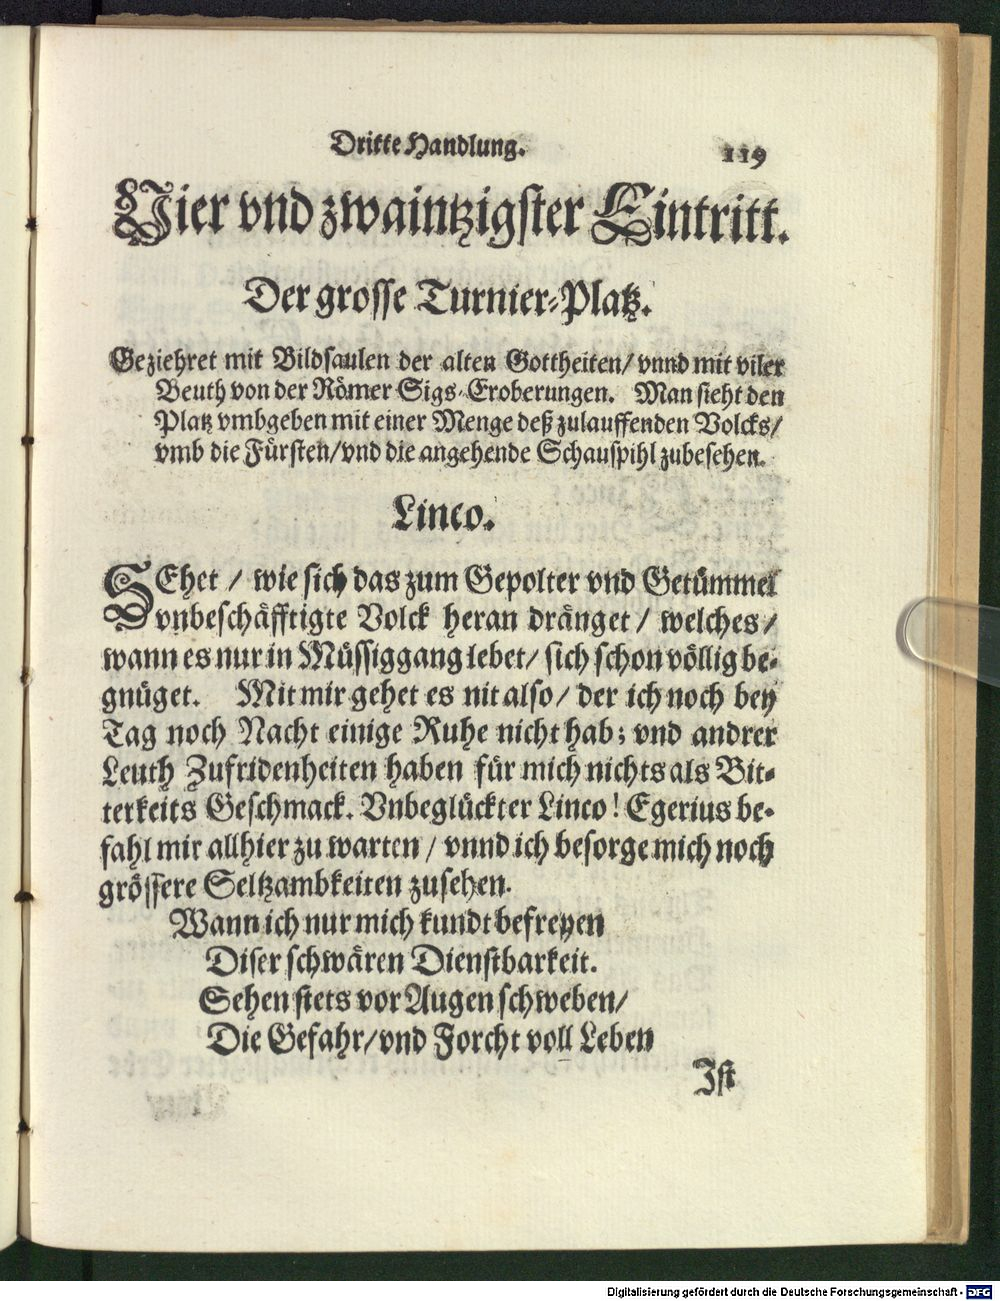 Dritte Handlung. 119
Vier vnd zwaintzigster Eintritt.
Der grosse Turnier-Platz.
Geziehret mit Bildsaulen der alten Gottheiten/ vnnd mit viler
Beuth von der Römer Sigs-Eroberungen. Man sieht den
Platz vmbgeben mit einer Menge deß zulauffenden Volcks/
vmb die Fürsten/ vnd die angehende Schauspihl zubesehen.
Linco.
SEhet / wie sich das zum Gepolter vnd Getümmel
vnbeschäfftigte Volck heran dränget / welches /
wann es nur in Müssiggang lebet/ sich schon völlig be-
gnüget. Mit mir gehet es nit also/ der ich noch bey
Tag noch Nacht einige Ruhe nicht hab; vnd andrer
Leuth Zufridenheiten haben für mich nichts als Bit-
terkeits Geschmack. Vnbeglückter Linco! Egerius be-
fahl mir allhier zu warten / vnnd ich besorge mich noch
grössere Seltzambkeiten zusehen.
Wann ich nur mich kundt befreyen
Diser schwären Dienstbarkeit.
Sehen stets vor Augen schweben/
Die Gefahr/ vnd Forcht voll Leben
Ist
Digitalisierung gefördert durch die Deutsche Forschungsgemeinschaft - DFG